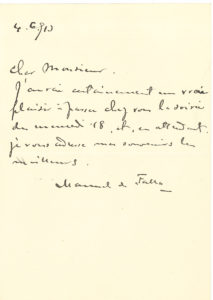 4.6.913
Cher Monsieur.
J'aurai certainement un vrai
plaisir à passer chez vous la soirée
du mercredi 18, et, en attendant,
je vous adresse mes souvenirs les
meilleurs.
Manuel de Falla